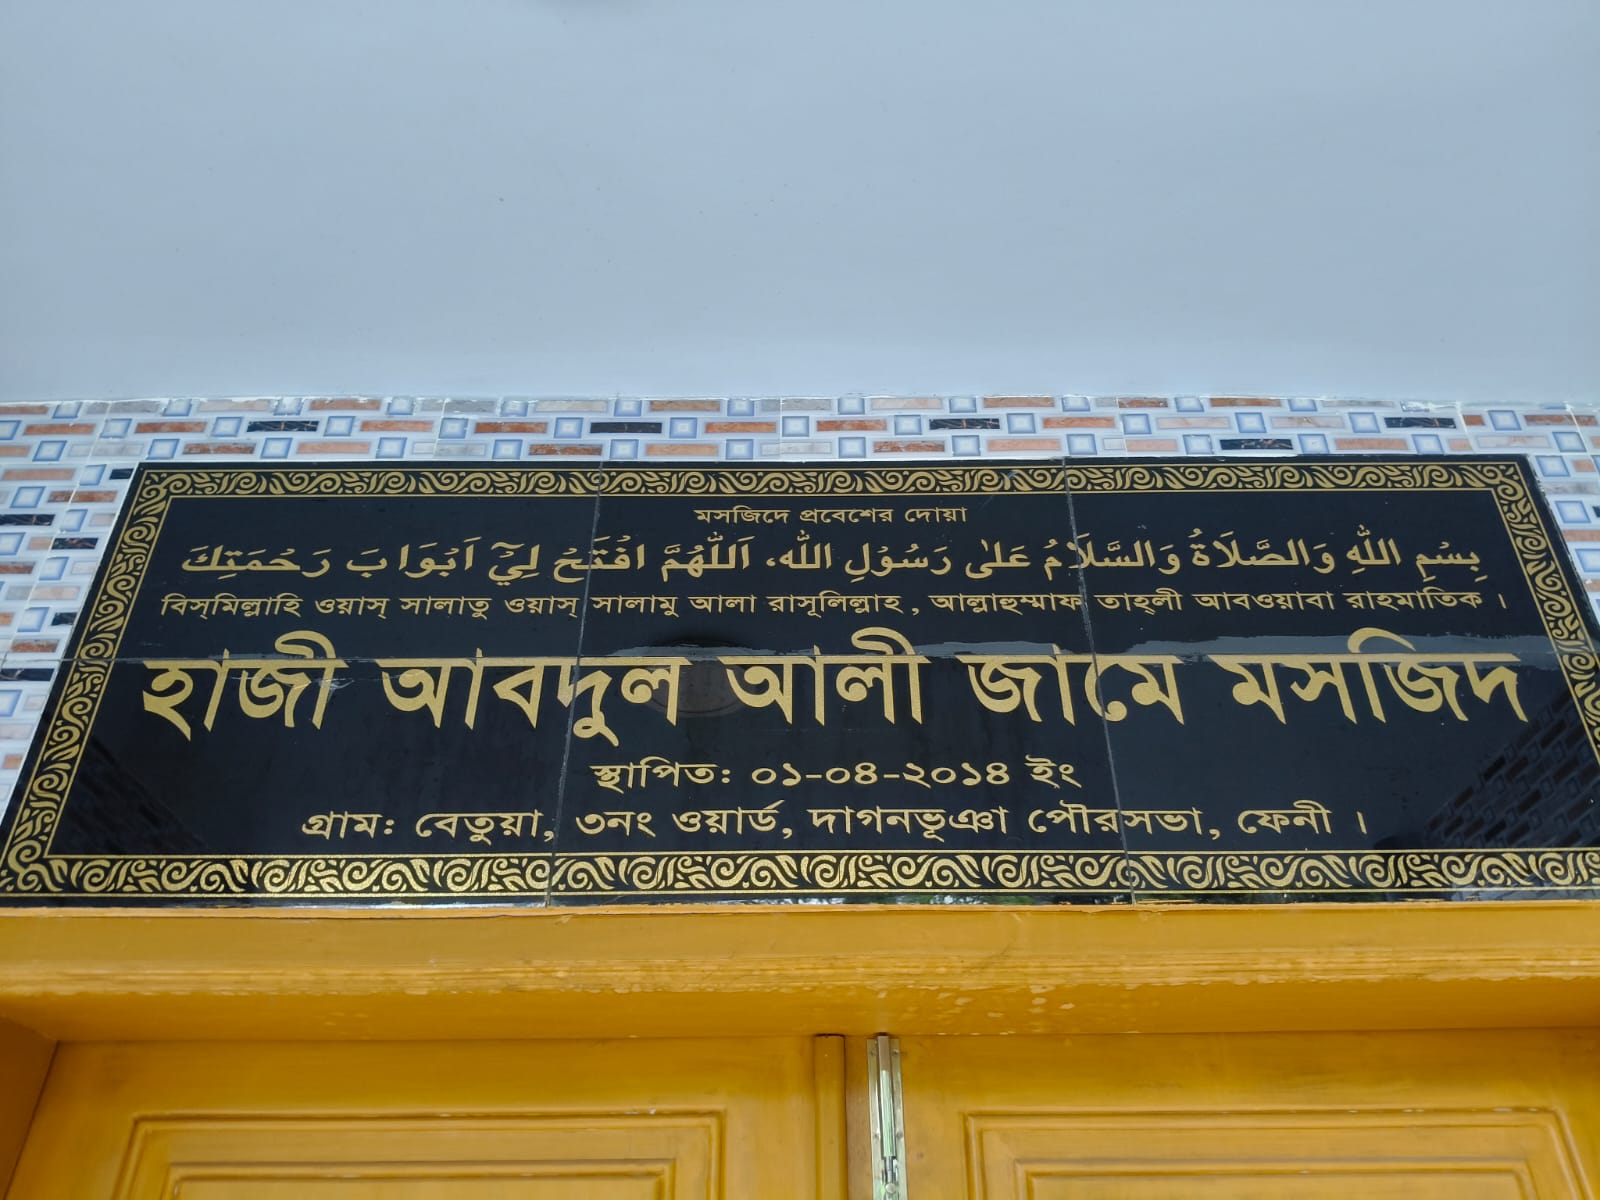 মসজিদে প্রবেশের দোয়া
بِسْمِ اللهِ وَالصَّلَاةُ وَالسَّلَامُ عَلٰى رَسُوْلِ اللهِ، اَللّٰهُمَّ افْتَحْ لِيْ اَبْوَابَ رَحْمَتِكَ
বিস্‌মিল্লাহি ওয়াস্‌ সালাতু ওয়াস্‌ সালামু আলা রাসূলিল্লাহ, আল্লাহুম্মাফ তাহ্‌লী আবওয়াবা রাহমাতিক।
হাজী আবদুল আলী জামে মসজিদ
স্থাপিত: ০১-০৪-২০১৪ ইং
গ্রাম: বেতুয়া, ৩নং ওয়ার্ড, দাগনভূঞা পৌরসভা, ফেনী।